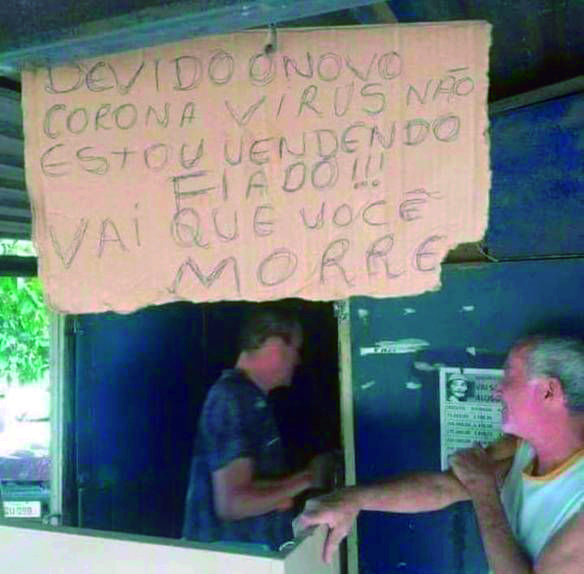 DEVIDO O NOVO
CORONA VÍRUS NÃO
ESTOU VENDENDO
FIADO!!!
VAI QUE VOCÊ
MORRE